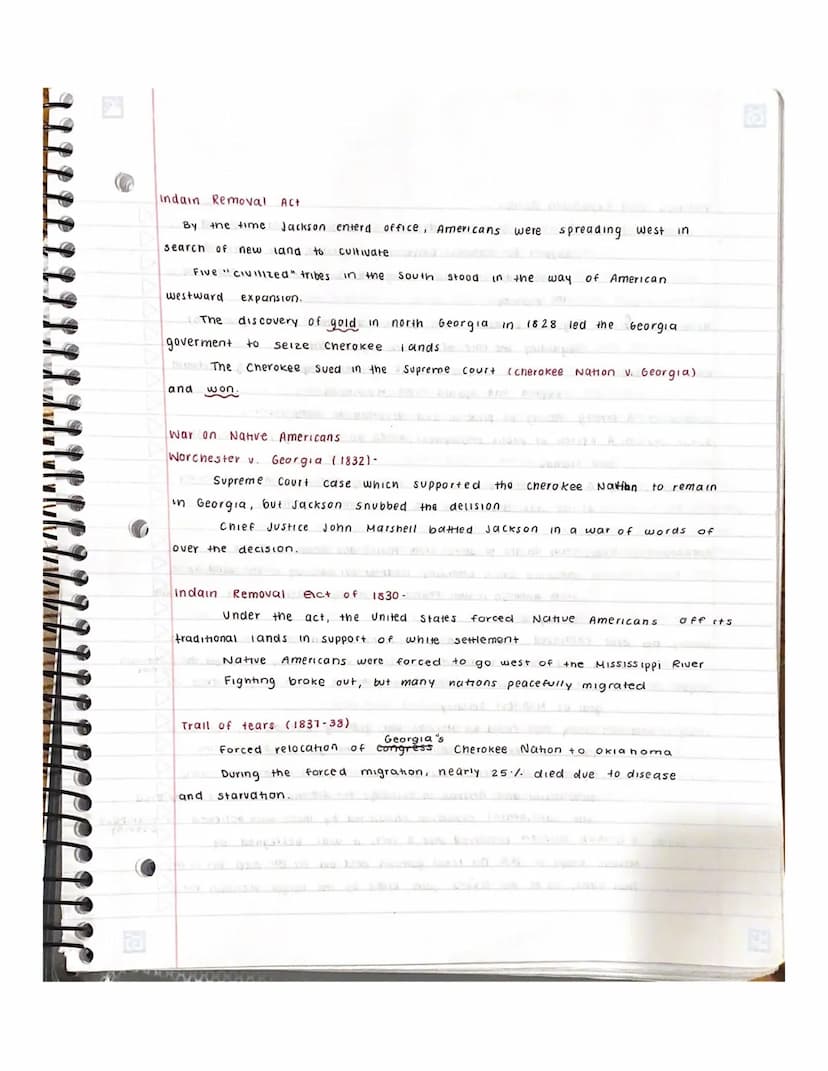 Indain Removal Act
By the time Jackson enterd office, Americans were spreading west in
search of new land to cultivate
Five "civilized" tribes in the south stood in the way of American
westward expansion.
The discovery of gold in north Georgia in 1828 led the Georgia
goverment to seize Cherokee lands
The Cherokee sued in the Supreme Court (Cherokee Nation v. Georgia)
and won.
War on Native Americans
Worchester v. Georgia (1832)-
Supreme Court case which supported the Cherokee Nation to remain
in Georgia, but Jackson snubbed the
Chief Justice John Marshell battled Jackson in a war of words of
over the decision.
Indain Removal act of 1830-
Under the act, the United States forced Native Americans off its
traditional lands in support of white settlement
Native Americans were forced to go west of the Mississippi River
Fighting broke out, but many nations peacefully migrated
Trail of tears (1837-38)
Georgia's
Forced relocation of congress Cherokee Nation to Oklahoma
During the forced migration, nearly 25% died due to disease
and starvation.